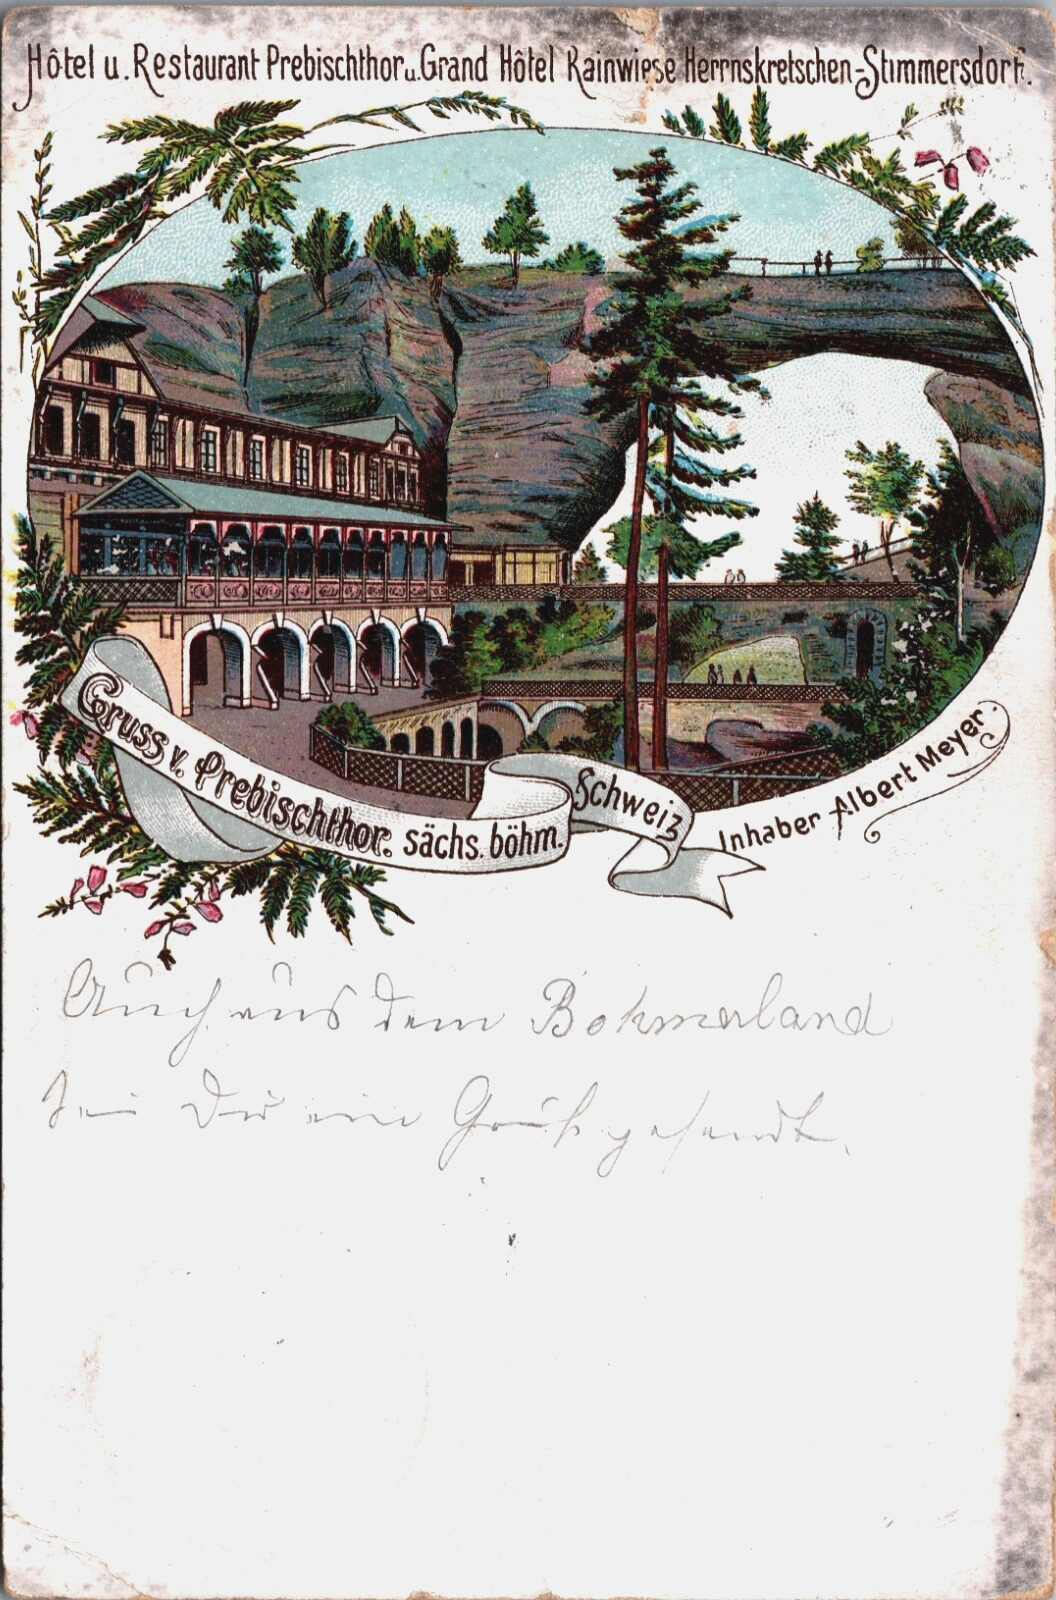 Hôtel u. Restaurant Prebischthor u. Grand Hôtel Rainwiese Herrnskretschen-Stimmersdorf.
Gruss v. Prebischthor. sächs. böhm. Schweiz
Inhaber Albert Meyer
Auch aus dem Bohmerland
sei Dir ein Gruß gesendt.